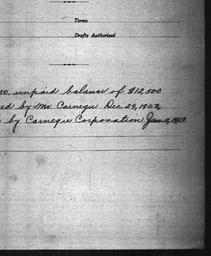 Terms
Drafts Authorized
00, unpaid balance of $12,500
ed by Mr. Carnegie Dec. 29, 1903,
by Carnegie Corporation Jan 2, 1913